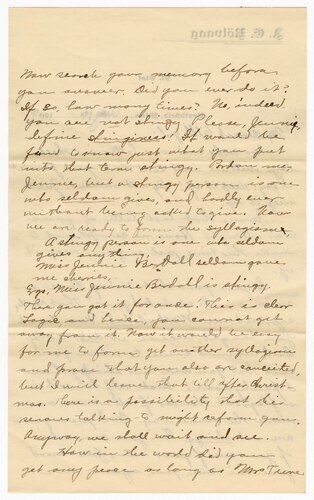 Now search your memory before
you answer. Did you ever do it?
If so, how many times? No, indeed
you are not stingy. Please, Jennie,
define stinginess! It would be
fun to know just what you put
into that term stingy. Pardon me,
Jennie, but a stingy person is one
who seldom gives, and hardly ever
without being asked to give. Now
we are ready to form the syllogism,
A stingy person is one who seldom
gives anything.
Miss Jennie Berdall seldom gave
me cherries.
Ergo, Miss Jennie Berdall is stingy.
There you got it for once. This is clear
logic and hence, you cannot get
away from it. Now it would be easy
for me to form yet another syllogism
and prove that you also are conceited,
but I will leave that till after Christ-
mas. There is a possibility, that this
serious talking to might reform you.
Anyway, we shall wait and see.
How in the world did you
get any peace as long as Mrs